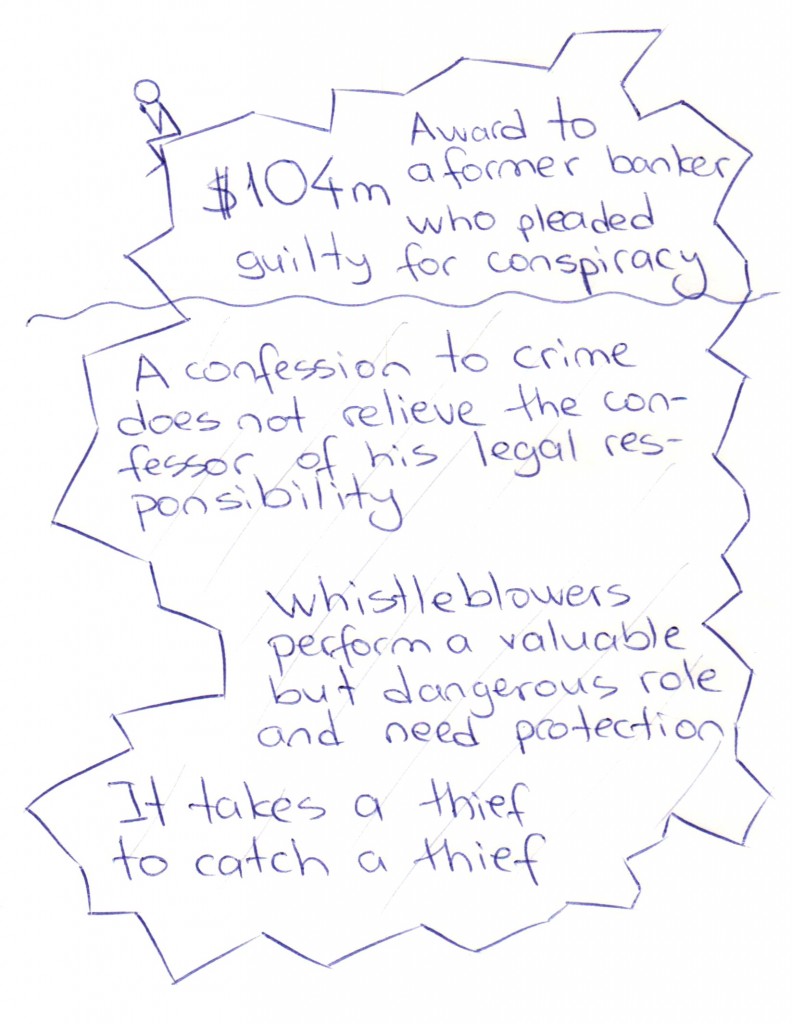 Award to
$104m a former banker
who pleaded
guilty for conspiracy
A confession to crime
does not relieve the con-
fessor of his legal res-
ponsibility
Whistleblowers
perform a valuable
but dangerous role
and need protection
It takes a thief
to catch a thief